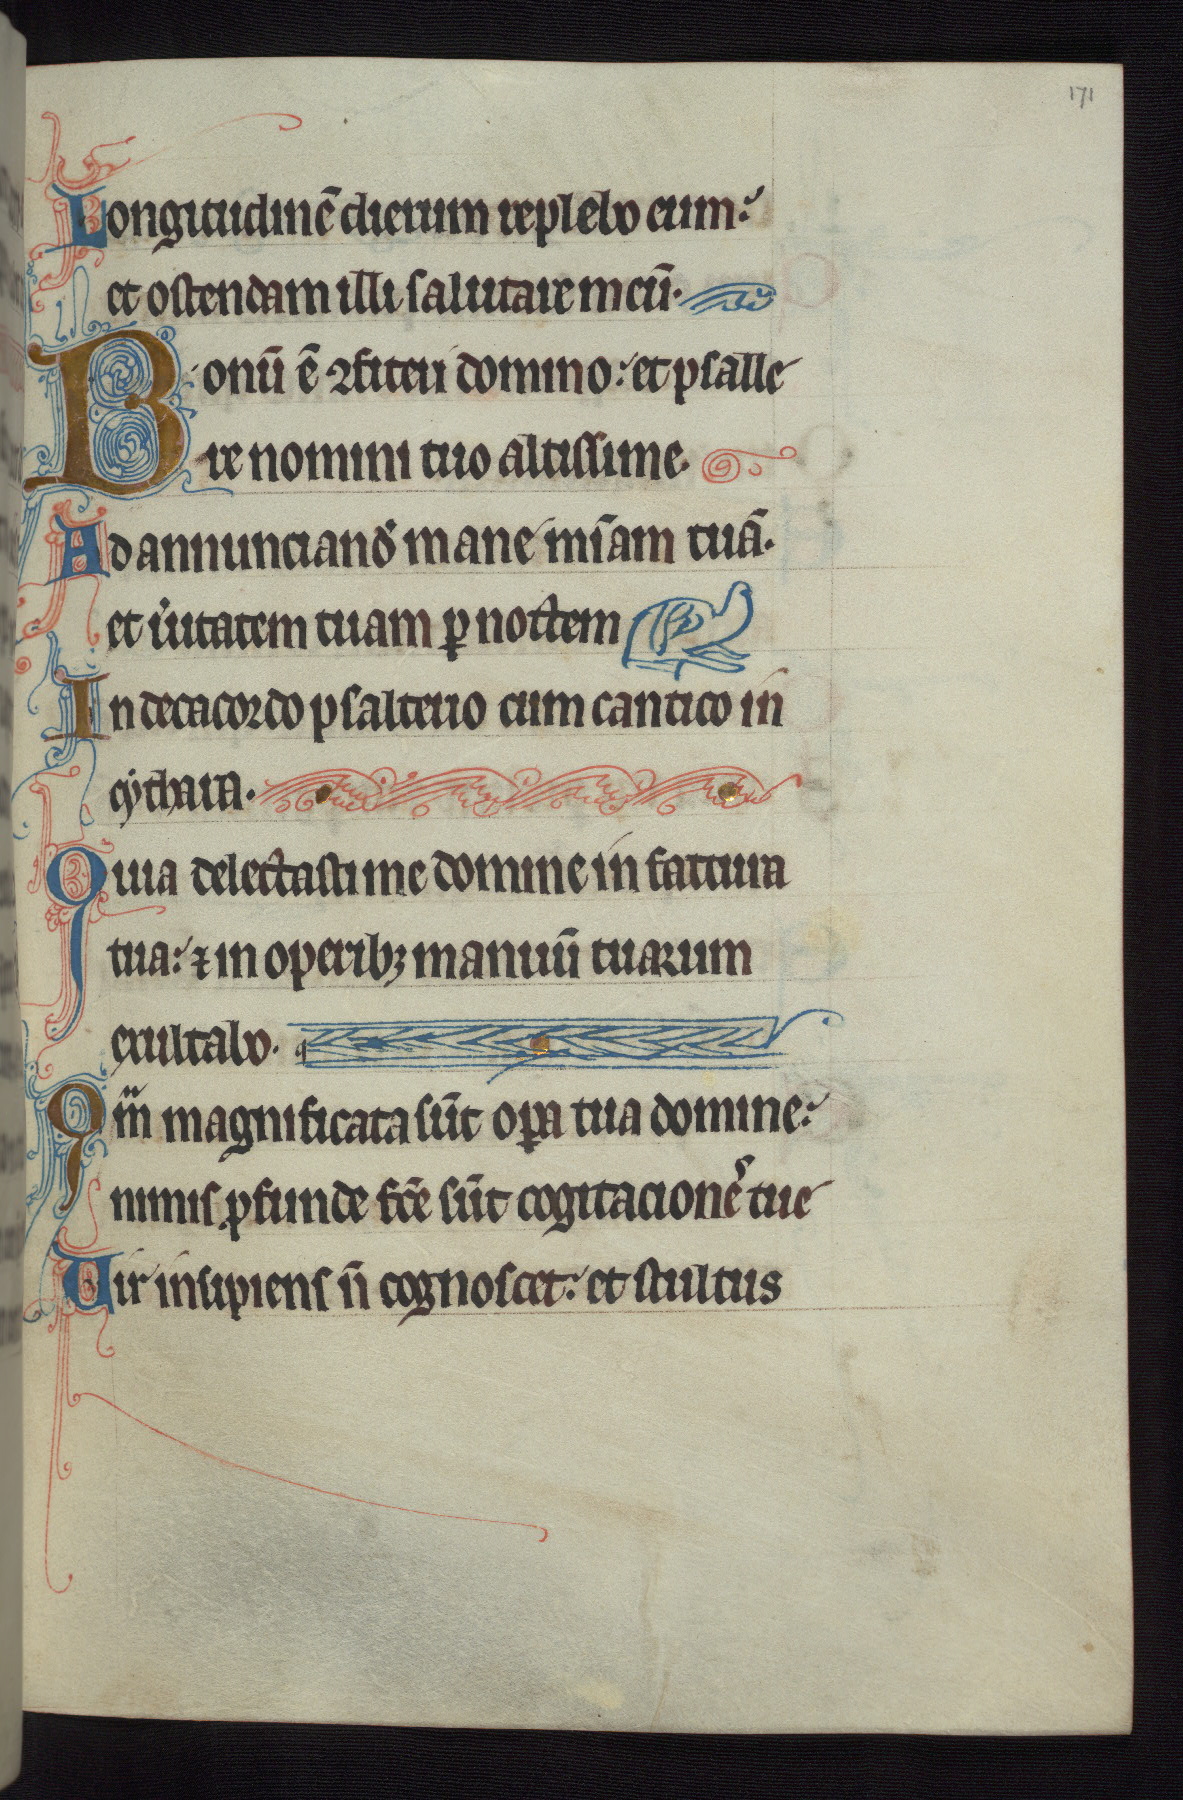 171
Longitudinē dierum replebo eum:
et ostendam illi salutare meū.
Bonū ē ꝯfiteri domino: et psalle
re nomini tuo altissime.
Ad annunciandͦ mane mīam tuā.
et ũitatem tuam ꝑ noctem
In decacordo psalterio cum cantico in
cythara.
Quia delectasti me domine in factura
tua: ⁊ in operibꝫ manuū tuarum
exultabo.
Qm̄ magnificata sūt oꝑa tua domine:
nimis ꝓfunde fc̄e sūt cogitacioneˢ tue
Vir insipiens n̄ cognoscet: et stultus